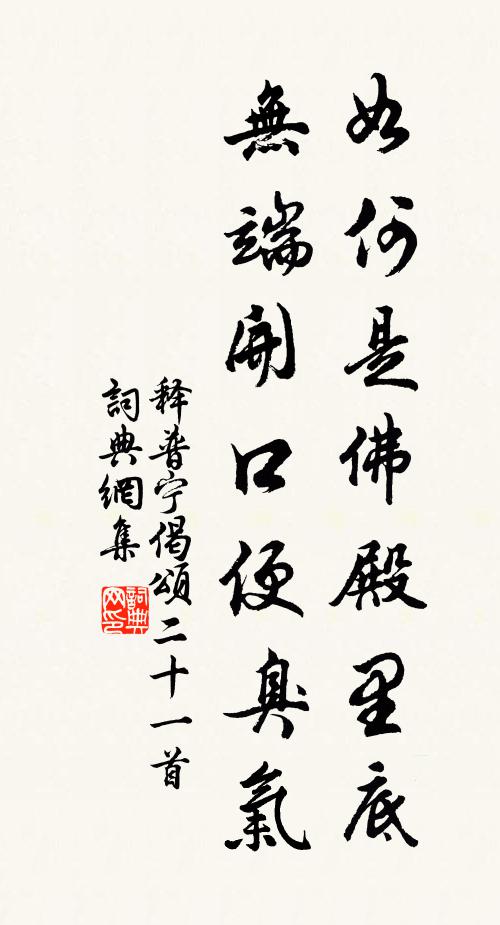 如何是佛殿里底
無端開口便臭氣
释普宁偈頌二十一首
詞典網集
詞典网印